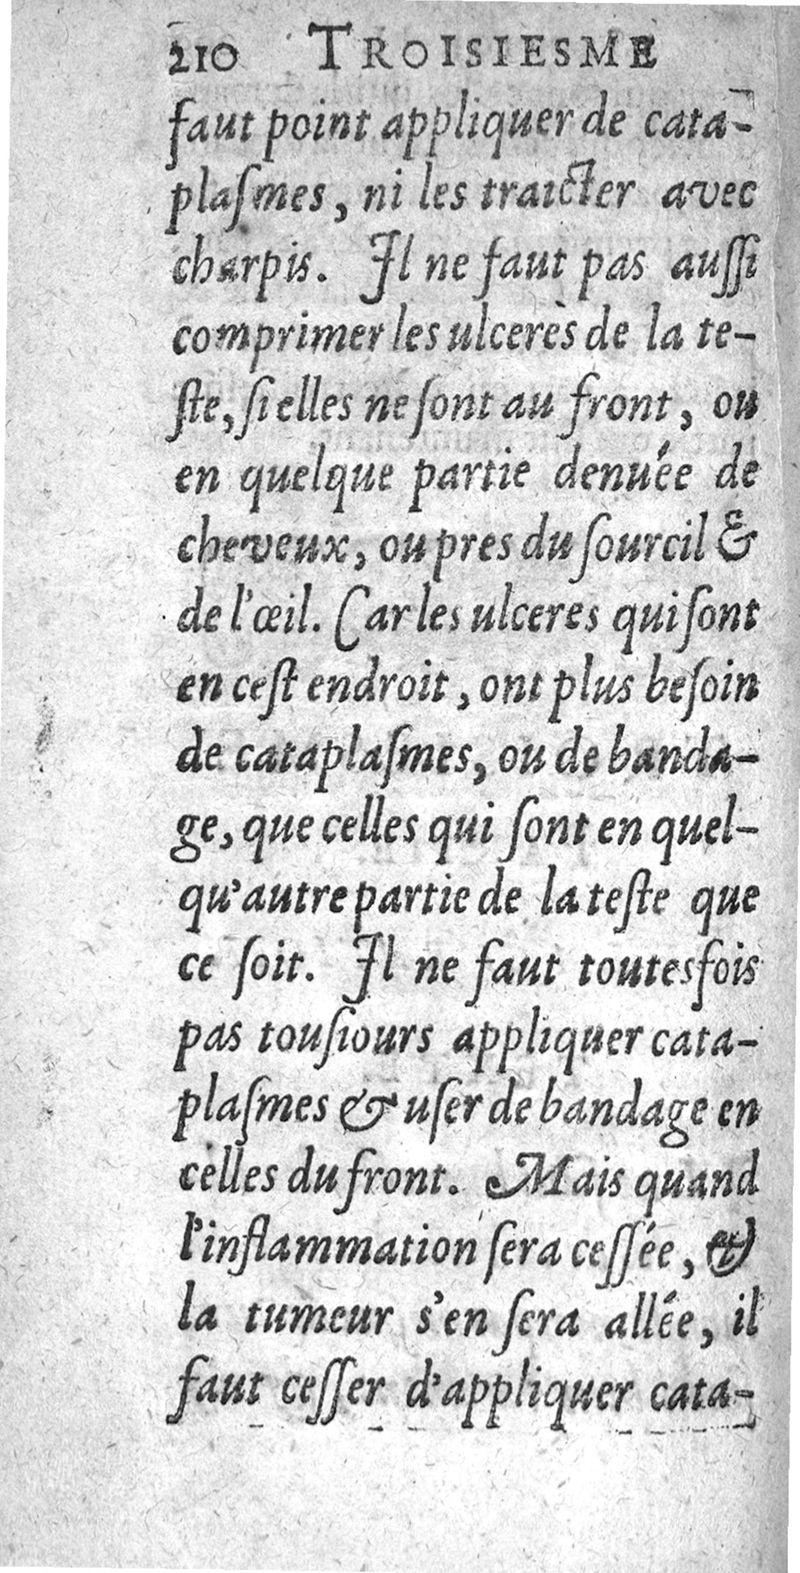 210 TROISIESME
faut point appliquer de cata-
plaſmes, ni les traicter avec
charpis. Il ne faut pas auſſi
comprimer les ulcerès de la te-
ſte, ſi elles ne ſont au front, ou
en quelque partie denuée de
cheveux, ou pres du ſourcil &
de l'œil. Car les ulceres qui ſont
en ceſt endroit, ont plus beſoin
de cataplaſmes, ou de banda-
ge, que celles qui ſont en quel-
qu'autre partie de la teſte que
ce ſoit. Il ne faut toutesfois
pas touſiours appliquer cata-
plaſmes & uſer de bandage en
celles du front. Mais quand
l'inflammation ſera ceſſée, &
la tumeur s'en ſera allée, il
faut ceſſer d'appliquer cata-